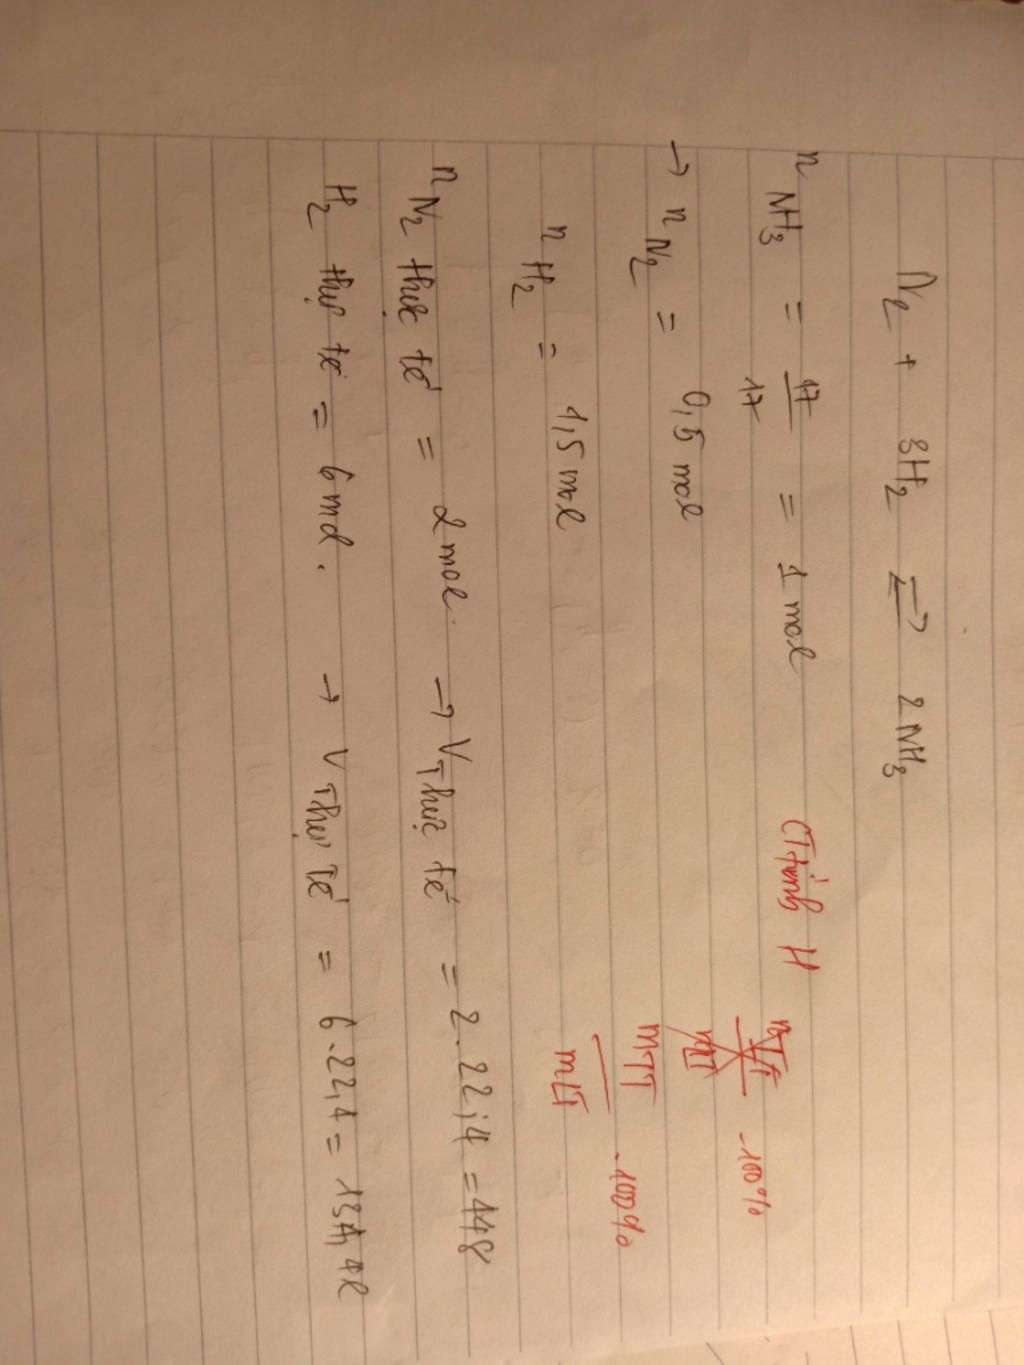 N2 + 3H2 ⇌ 2NH3
nNH3 = 17/17 = 1 mol
CT tính H
nTT/nLT .100%
→ nN2 = 0,5 mol
mTT/mLT .100%
nH2 = 1,5 mol
nN2 thực tế = 2 mol. → VThực tế = 2.22,4 = 448
H2 thực tế = 6 mol. → VThực Tế = 6.22,4 = 134,4l